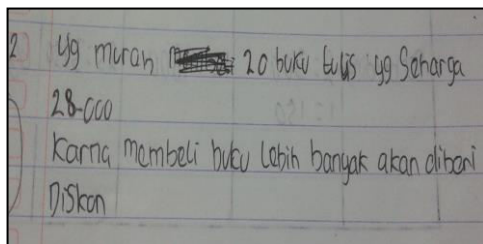 2 yg murah 20 buku tulis yg seharga
28.000
Karna membeli buku lebih banyak akan diberi
Diskon